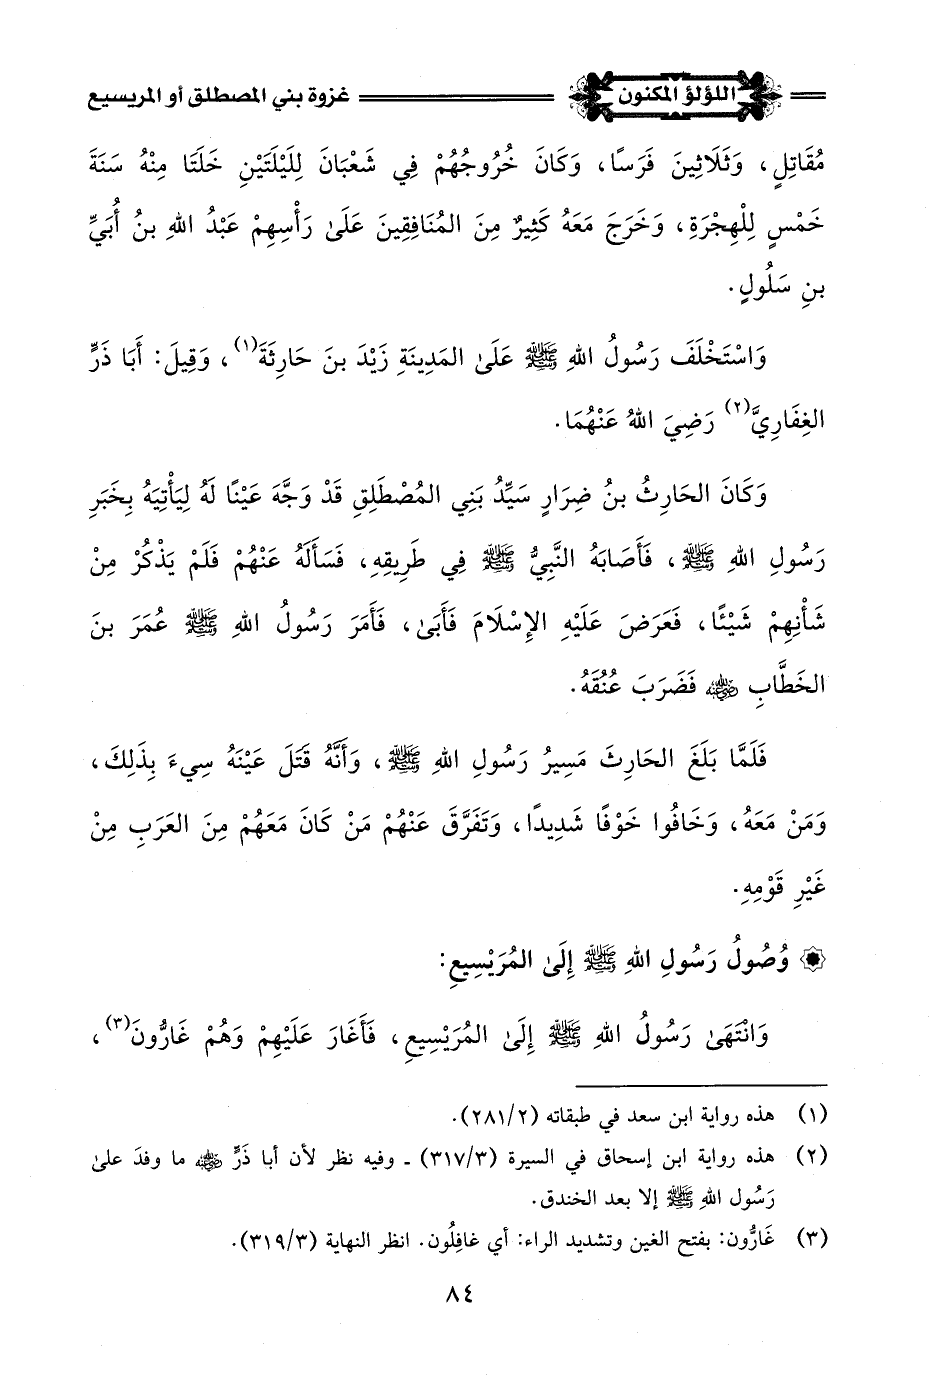 اللؤلؤ المكنون غزوة بني المصطلق أو المريسيع
مُقَاتِلٍ، وَثَلَاثِينَ فَرَسًا، وَكَانَ خُرُوجُهُمْ فِي شَعْبَانَ لِلَيْلَتَيْنِ خَلَتَا مِنْهُ سَنَةَ
خَمْسٍ لِلْهِجْرَةِ، وَخَرَجَ مَعَهُ كَثِيرٌ مِنَ المُنَافِقِينَ عَلَىٰ رَأْسِهِمْ عَبْدُ اللهِ بنُ أُبَيِّ
بنِ سَلُولٍ.
وَاسْتَخْلَفَ رَسُولُ اللهِ ﷺ عَلَىٰ المَدِينَةِ زَيْدَ بنَ حَارِثَةَ(١)، وَقِيلَ: أَبَا ذَرٍّ
الغِفَارِيَّ(٢) رَضِيَ اللهُ عَنْهُمَا.
وَكَانَ الحَارِثُ بنُ ضِرَارٍ سَيِّدُ بَنِي المُصْطَلِقِ قَدْ وَجَّهَ عَيْنًا لَهُ لِيَأْتِيَهُ بِخَبَرِ
رَسُولِ اللهِ ﷺ، فَأَصَابَهُ النَّبِيُّ ﷺ فِي طَرِيقِهِ، فَسَأَلَهُ عَنْهُمْ فَلَمْ يَذْكُرْ مِنْ
شَأْنِهِمْ شَيْئًا، فَعَرَضَ عَلَيْهِ الإِسْلَامَ فَأَبَىٰ، فَأَمَرَ رَسُولُ اللهِ ﷺ عُمَرَ بنَ
الخَطَّابِ رضي الله عنه فَضَرَبَ عُنُقَهُ.
فَلَمَّا بَلَغَ الحَارِثَ مَسِيرُ رَسُولِ اللهِ ﷺ، وَأَنَّهُ قَتَلَ عَيْنَهُ سِيءَ بِذَلِكَ،
وَمَنْ مَعَهُ، وَخَافُوا خَوْفًا شَدِيدًا، وَتَفَرَّقَ عَنْهُمْ مَنْ كَانَ مَعَهُمْ مِنَ العَرَبِ مِنْ
غَيْرِ قَوْمِهِ.
۞ وُصُولُ رَسُولِ اللهِ ﷺ إِلَىٰ المُرَيْسِيعِ:
وَانْتَهَىٰ رَسُولُ اللهِ ﷺ إِلَىٰ المُرَيْسِيعِ، فَأَغَارَ عَلَيْهِمْ وَهُمْ غَارُّونَ(٣)،
(١) هذه رواية ابن سعد في طبقاته (٢٨١/٢).
(٢) هذه رواية ابن إسحاق في السيرة (٣١٧/٣) ـ وفيه نظر لأن أبا ذَرٍّ رضي الله عنه ما وفدَ علىٰ
رَسُول اللهِ ﷺ إلا بعد الخندق.
(٣) غَارُّون: بفتح الغين وتشديد الراء: أي غافِلُون. انظر النهاية (٣١٩/٣).
٨٤